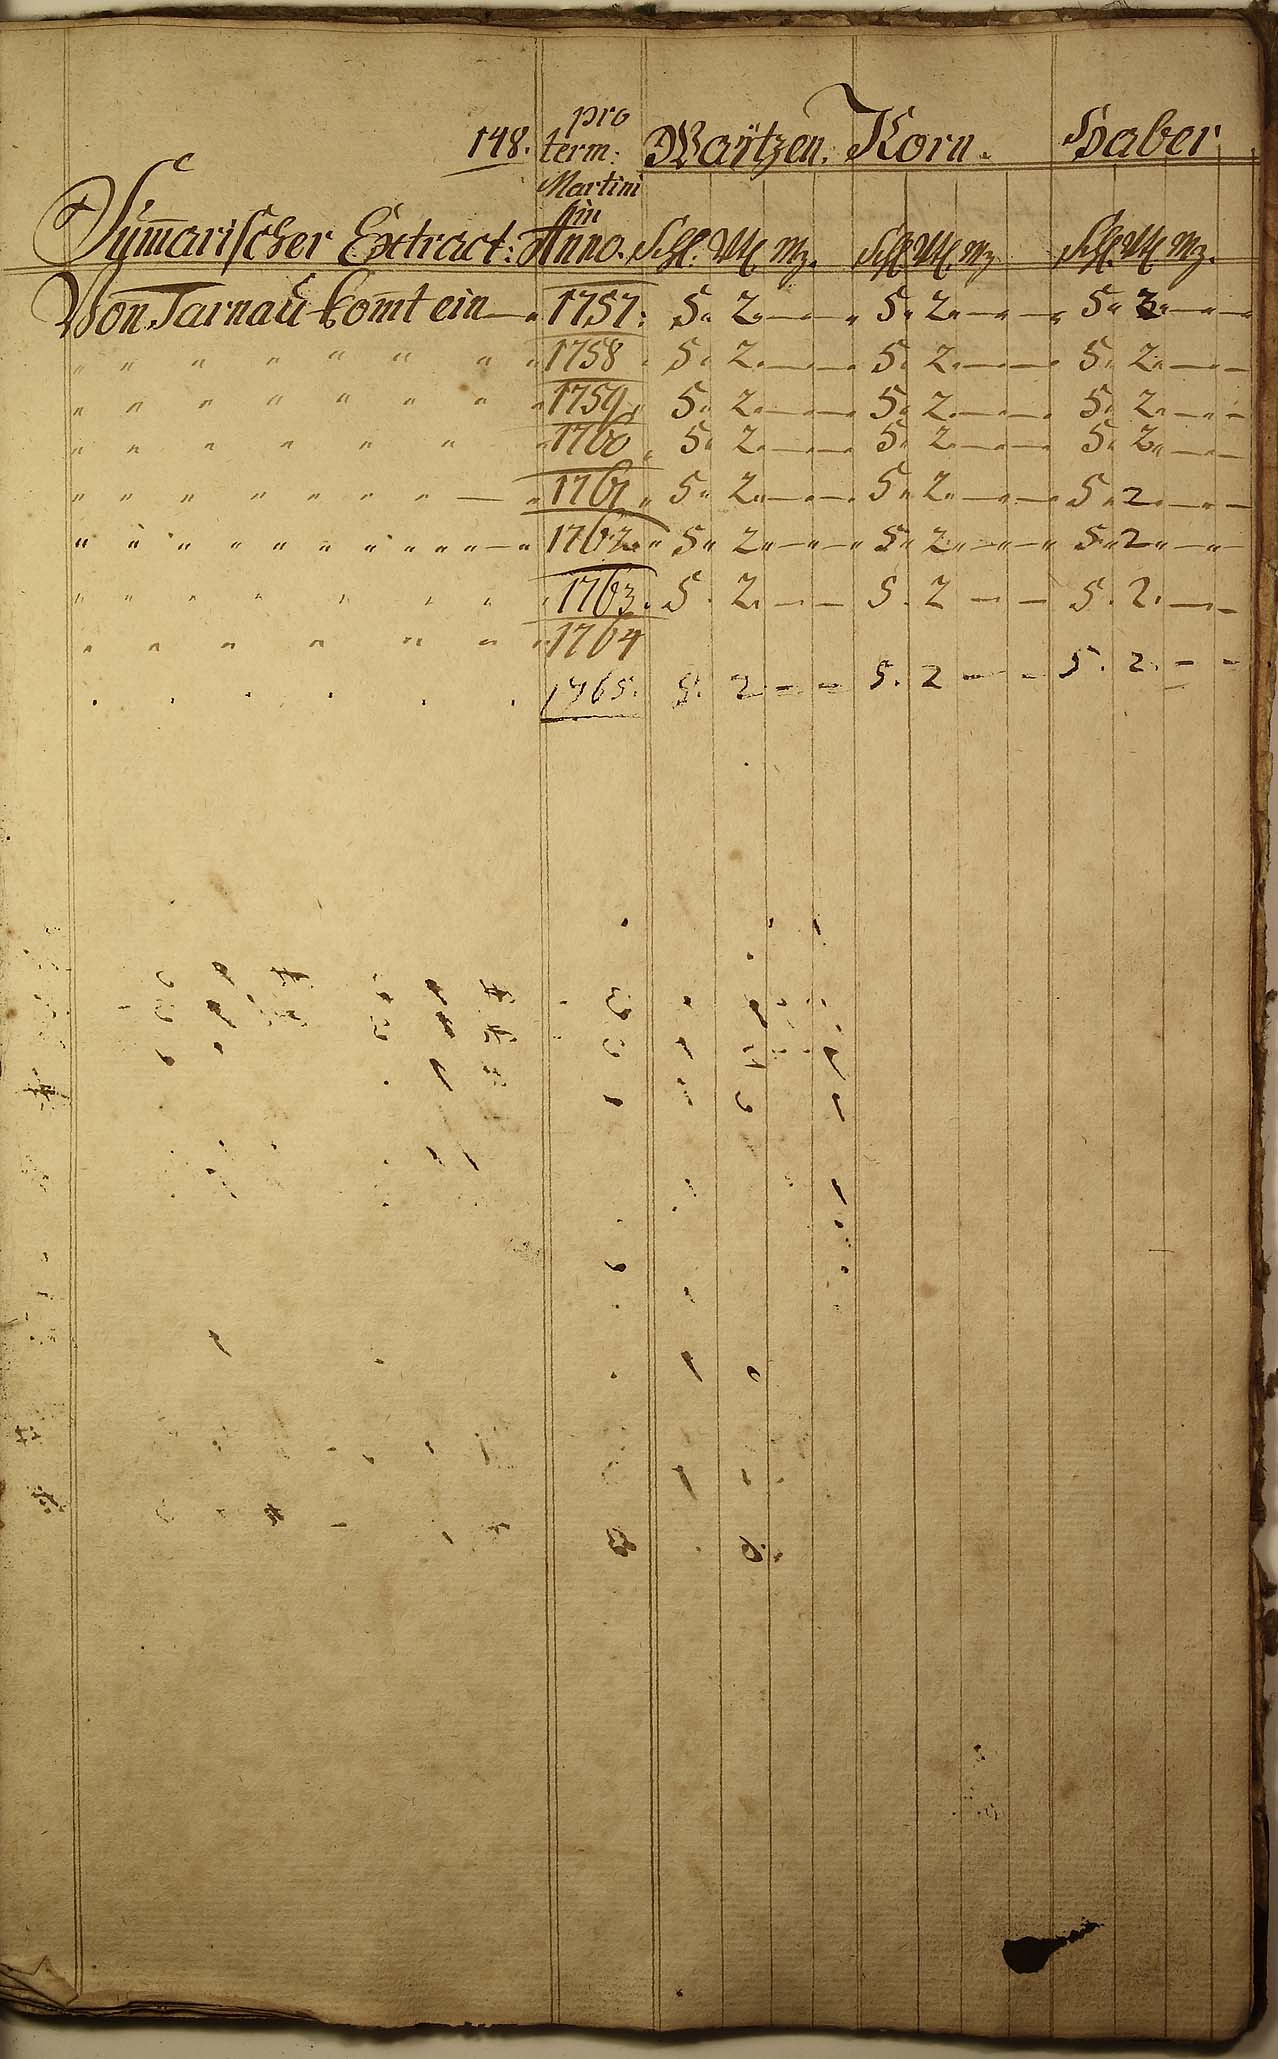 148. pro term: Martini in Anno. Waÿtzen. Korn. Haber
Sum̄arischer Extract: Schl. Vtl. Mz. Schl. Vtl. Mz Schl. Vtl. Mz.
Von Tarnau kom̄t ein—„ 1757: 5„ 2„—„—„ 5„ 2„—„—„ 5„ 2„—„—
„ „ „ „ „ „ „ „ 1758 . 5„ 2„—„— 5„ 2„—„— 5„ 2„—„—
„ „ „ „ „ „ „ „ 1759, 5„ 2„—„—„ 5„ 2„—„— 5„ 2„—„—
„ „ „ „ „ „ „ „ 1760 „ 5„ 2„—„—„ 5„ 2„—„— 5„ 2„—„—
„ „ „ „ „ „ „ — „ 1761 „ 5„ 2„—„—„ 5„ 2„—„—„ 5„ 2„—„—
„ „ „ „ „ „ „ „ „ „ „ „—„ 1762„ „ 5„ 2„—„—„ 5„ 2„—„—„ 5„ 2„—„—
„ „ „ „ „ „ „ „ 1763. 5. 2. — — 5. 2 — — 5. 2. — —
„ „ „ „ „ „ „ 1764
. . . . . . 1765. 5. 2 – – 5. 2 – – 5. 2. – –